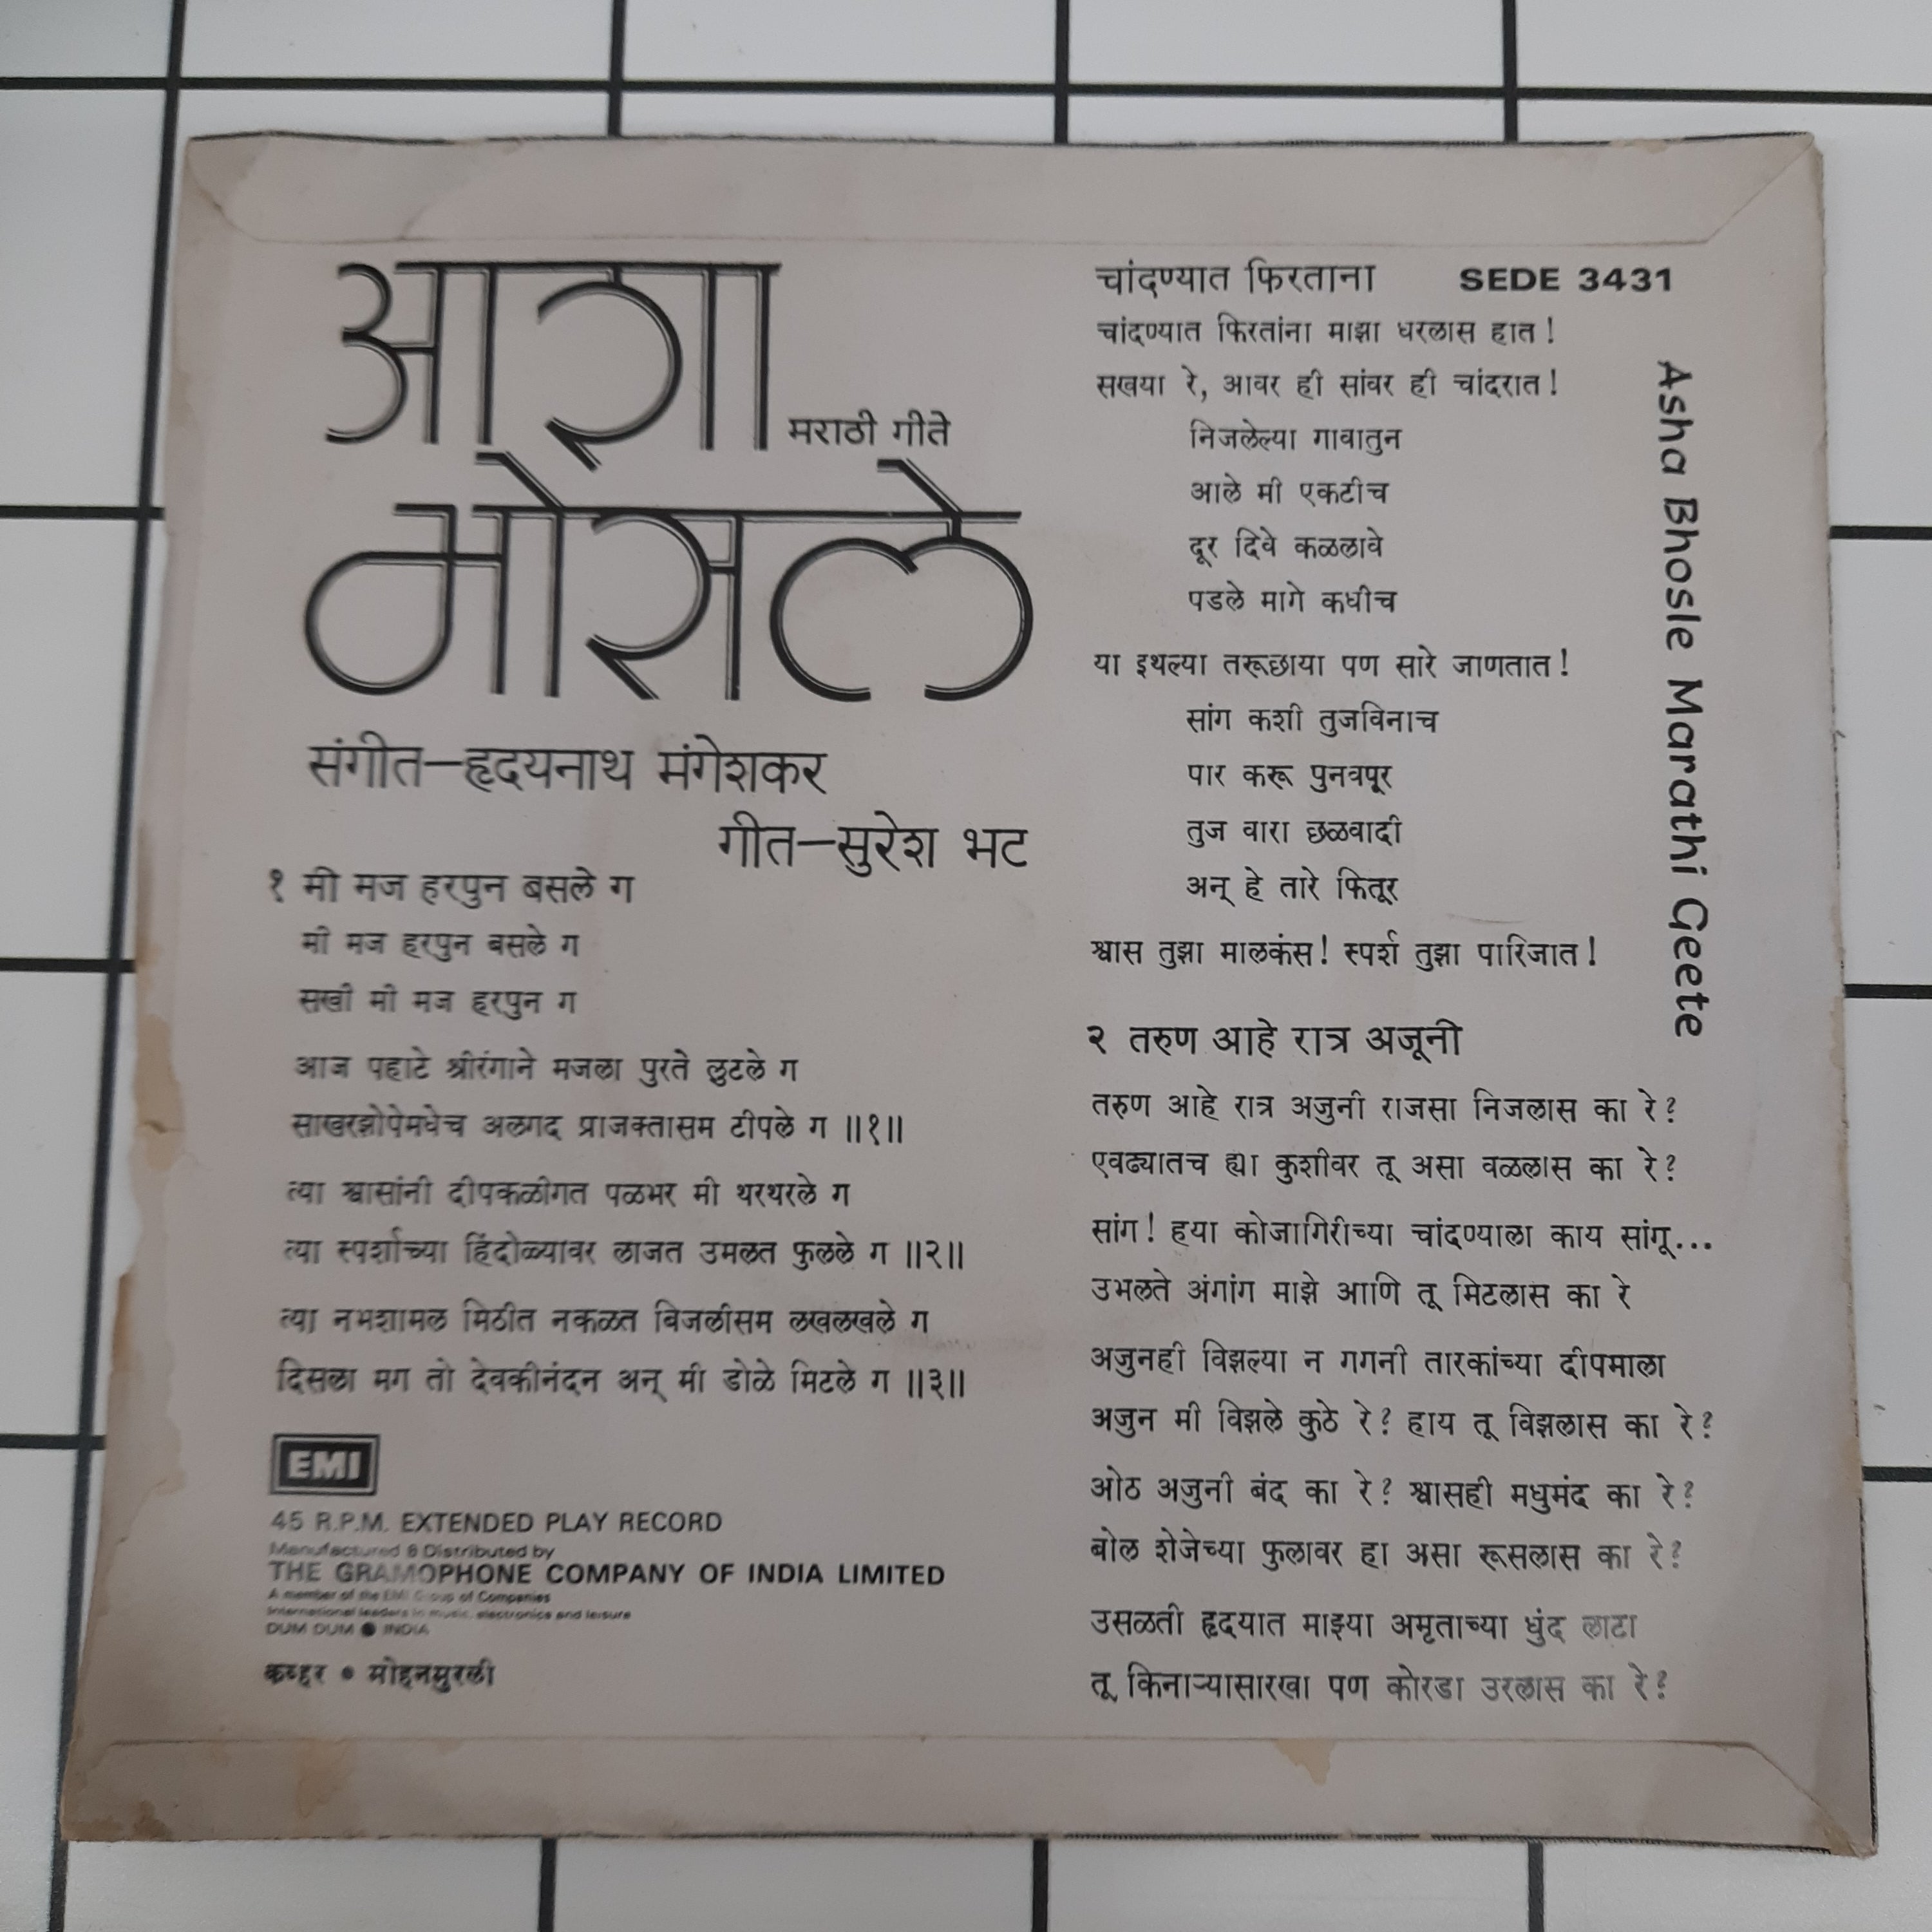 आशा
मराठी गीते
भोसले
संगीत—हृदयनाथ मंगेशकर
गीत—सुरेश भट
१ मी मज हरपुन बसले ग
मी मज हरपुन बसले ग
सखी मी मज हरपुन ग
आज पहाटे श्रीरंगाने मजला पुरते लुटले ग
साखरझोपेमधेच अलगद प्राजक्तासम टीपले ग ॥१॥
त्या श्वासांनी दीपकळीगत पळभर मी थरथरले ग
त्या स्पर्शाच्या हिंदोळ्यावर लाजत उमलत फुलले ग ॥२॥
त्या नभशामल मिठीत नकळत बिजलीसम लखलखले ग
दिसला मग तो देवकीनंदन अन् मी डोळे मिटले ग ॥३॥
EMI
45 R.P.M. EXTENDED PLAY RECORD
Manufactured & Distributed by
THE GRAMOPHONE COMPANY OF INDIA LIMITED
A member of the EMI Group of Companies
International leaders in music, electronics and leisure
DUM DUM ● INDIA
कव्हर • मोहनमुरली
चांदण्यात फिरताना SEDE 3431
चांदण्यात फिरतांना माझा धरलास हात!
सखया रे, आवर ही सांवर ही चांदरात!
निजलेल्या गावातुन
आले मी एकटीच
दूर दिवे कळलावे
पडले मागे कधीच
या इथल्या तरूछाया पण सारे जाणतात!
सांग कशी तुजविनाच
पार करू पुनवपूर
तुज वारा छळवादी
अन् हे तारे फितूर
श्वास तुझा मालकंस! स्पर्श तुझा पारिजात!
२ तरुण आहे रात्र अजूनी
तरुण आहे रात्र अजुनी राजसा निजलास का रे?
एवढ्यातच ह्या कुशीवर तू असा वळलास का रे?
सांग! हया कोजागिरीच्या चांदण्याला काय सांगू...
उमलते अंगांग माझे आणि तू मिटलास का रे
अजुनही विझल्या न गगनी तारकांच्या दीपमाला
अजुन मी विझले कुठे रे? हाय तू विझलास का रे?
ओठ अजुनी बंद का रे? श्वासही मधुमंद का रे?
बोल शेजेच्या फुलावर हा असा रूसलास का रे?
उसळती हृदयात माझ्या अमृताच्या धुंद लाटा
तू किनाऱ्यासारखा पण कोरडा उरलास का रे?
Asha Bhosle Marathi Geete